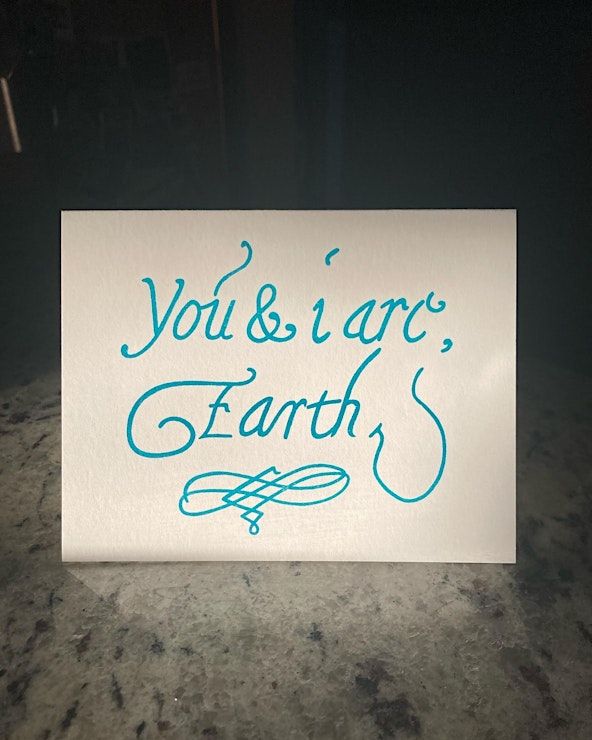 You & i are,
Earth